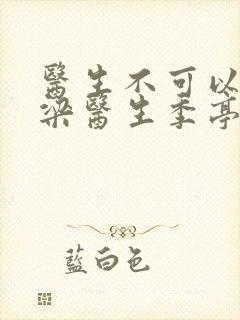 醫生不可以
梁醫生季亭
藍白色